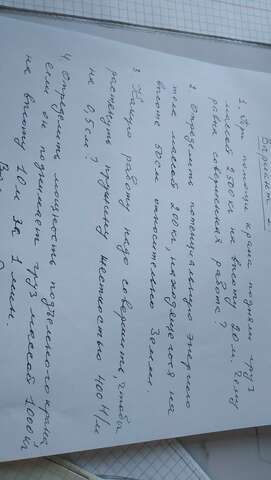 Вариант
1. При помощи крана подняли груз
массой 2500 кг на высоту 20 м. Чему
равна совершенная работа?
2. Определить потенциальную энергию
тела массой 200 кг, находящегося на
высоте 50 см относительно Земли.
3. Какую работу надо совершить, чтобы
растянуть пружину жесткостью 400 Н/м
на 0,5 см?
4. Определить мощность подъемного крана,
если он поднимает груз массой 1000 кг
на высоту 10 м за 1 мин.